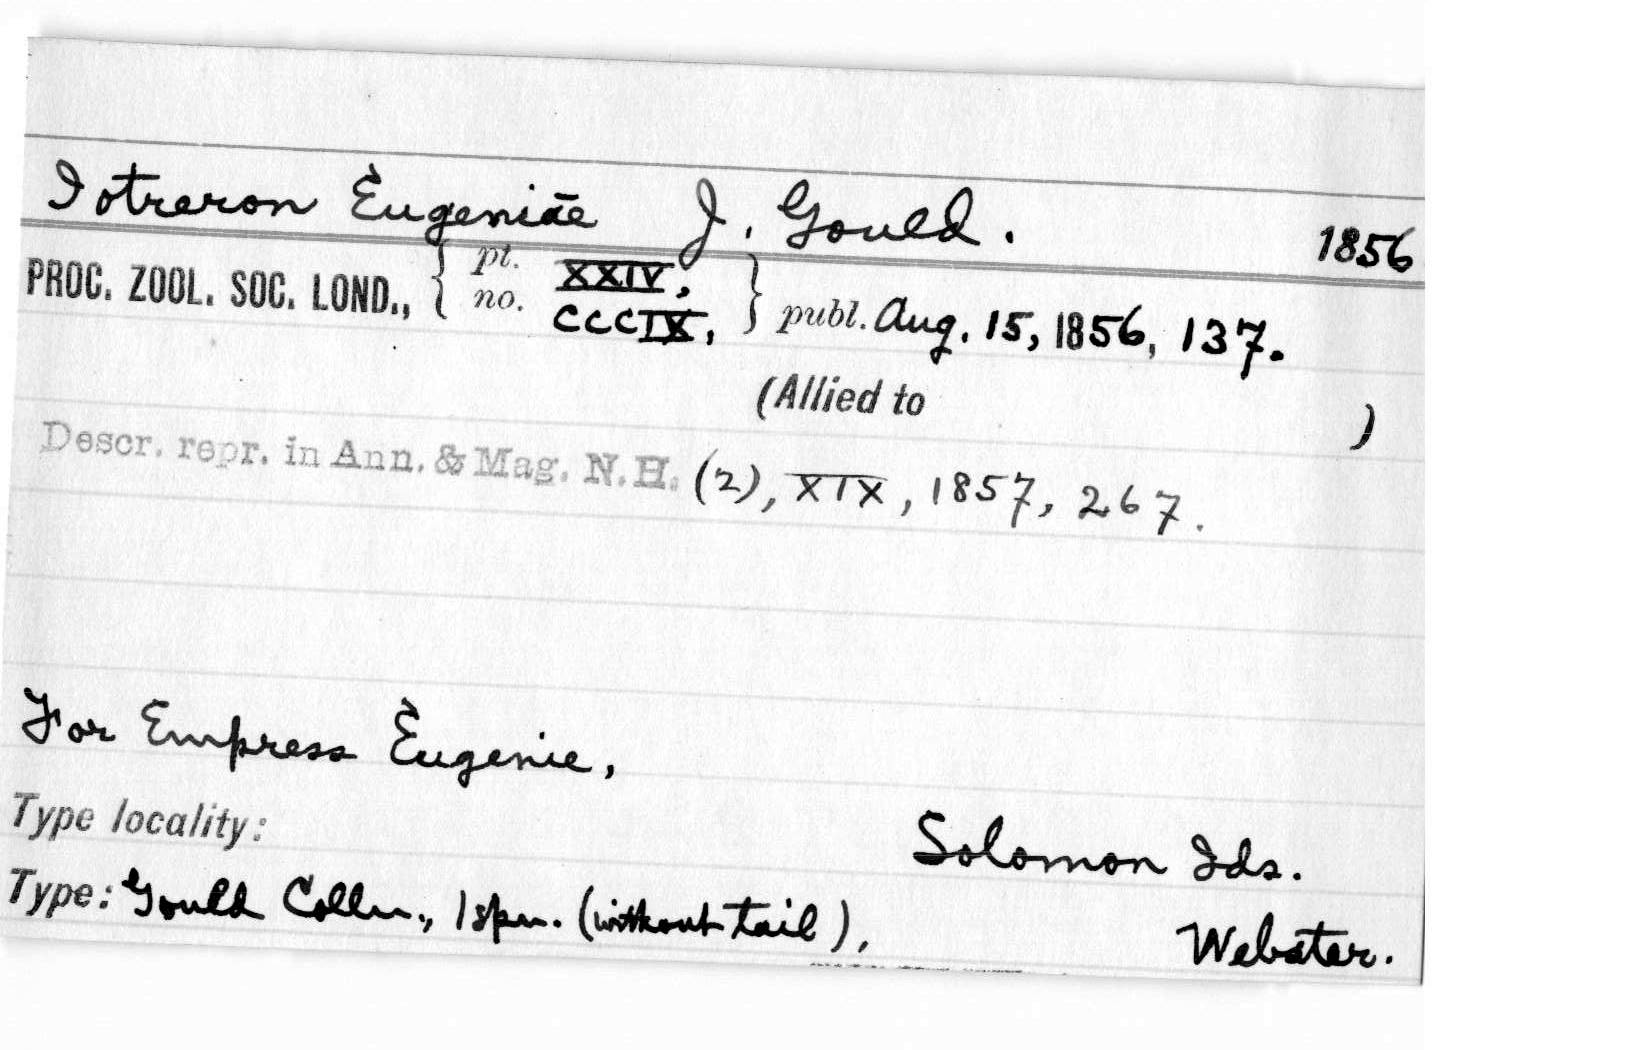 Iotreron Eugeniae J. Gould. 1856
PROC. ZOOL. SOC. LOND., { pt. XXIV, no. CCCIX, } publ. Aug. 15, 1856, 137.
(Allied to )
Descr. repr. in Ann. & Mag. N.H. (2), XIX, 1857, 267.
For Empress Eugenie,
Type locality: Solomon Ids.
Type: Gould Colln., 1 spn. (without tail), Webster.